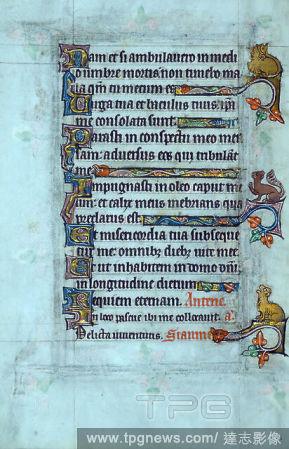 Nam et si ambulavero in medi
o umbre mortis non timebo ma
la qm tu mecum es
Virga tua et baculus tuus ipa
me consolata sunt
Parasti in conspectu meo men
sam: adversus eos qui tribulāt
me
Impugnasti in oleo caput me
um: et calix meus inebrians quā
preclarus est
Et misericordia tua subseque
tur me: omnibz diebz vite mee
Et ut inhabitem in domo dnī:
in longitudine dierum
Requiem eternam. Antene
In loco pascue ibi me collocavit. a.
Delicta iuventutis.
TPG
www.tpgnews.com/達志影像